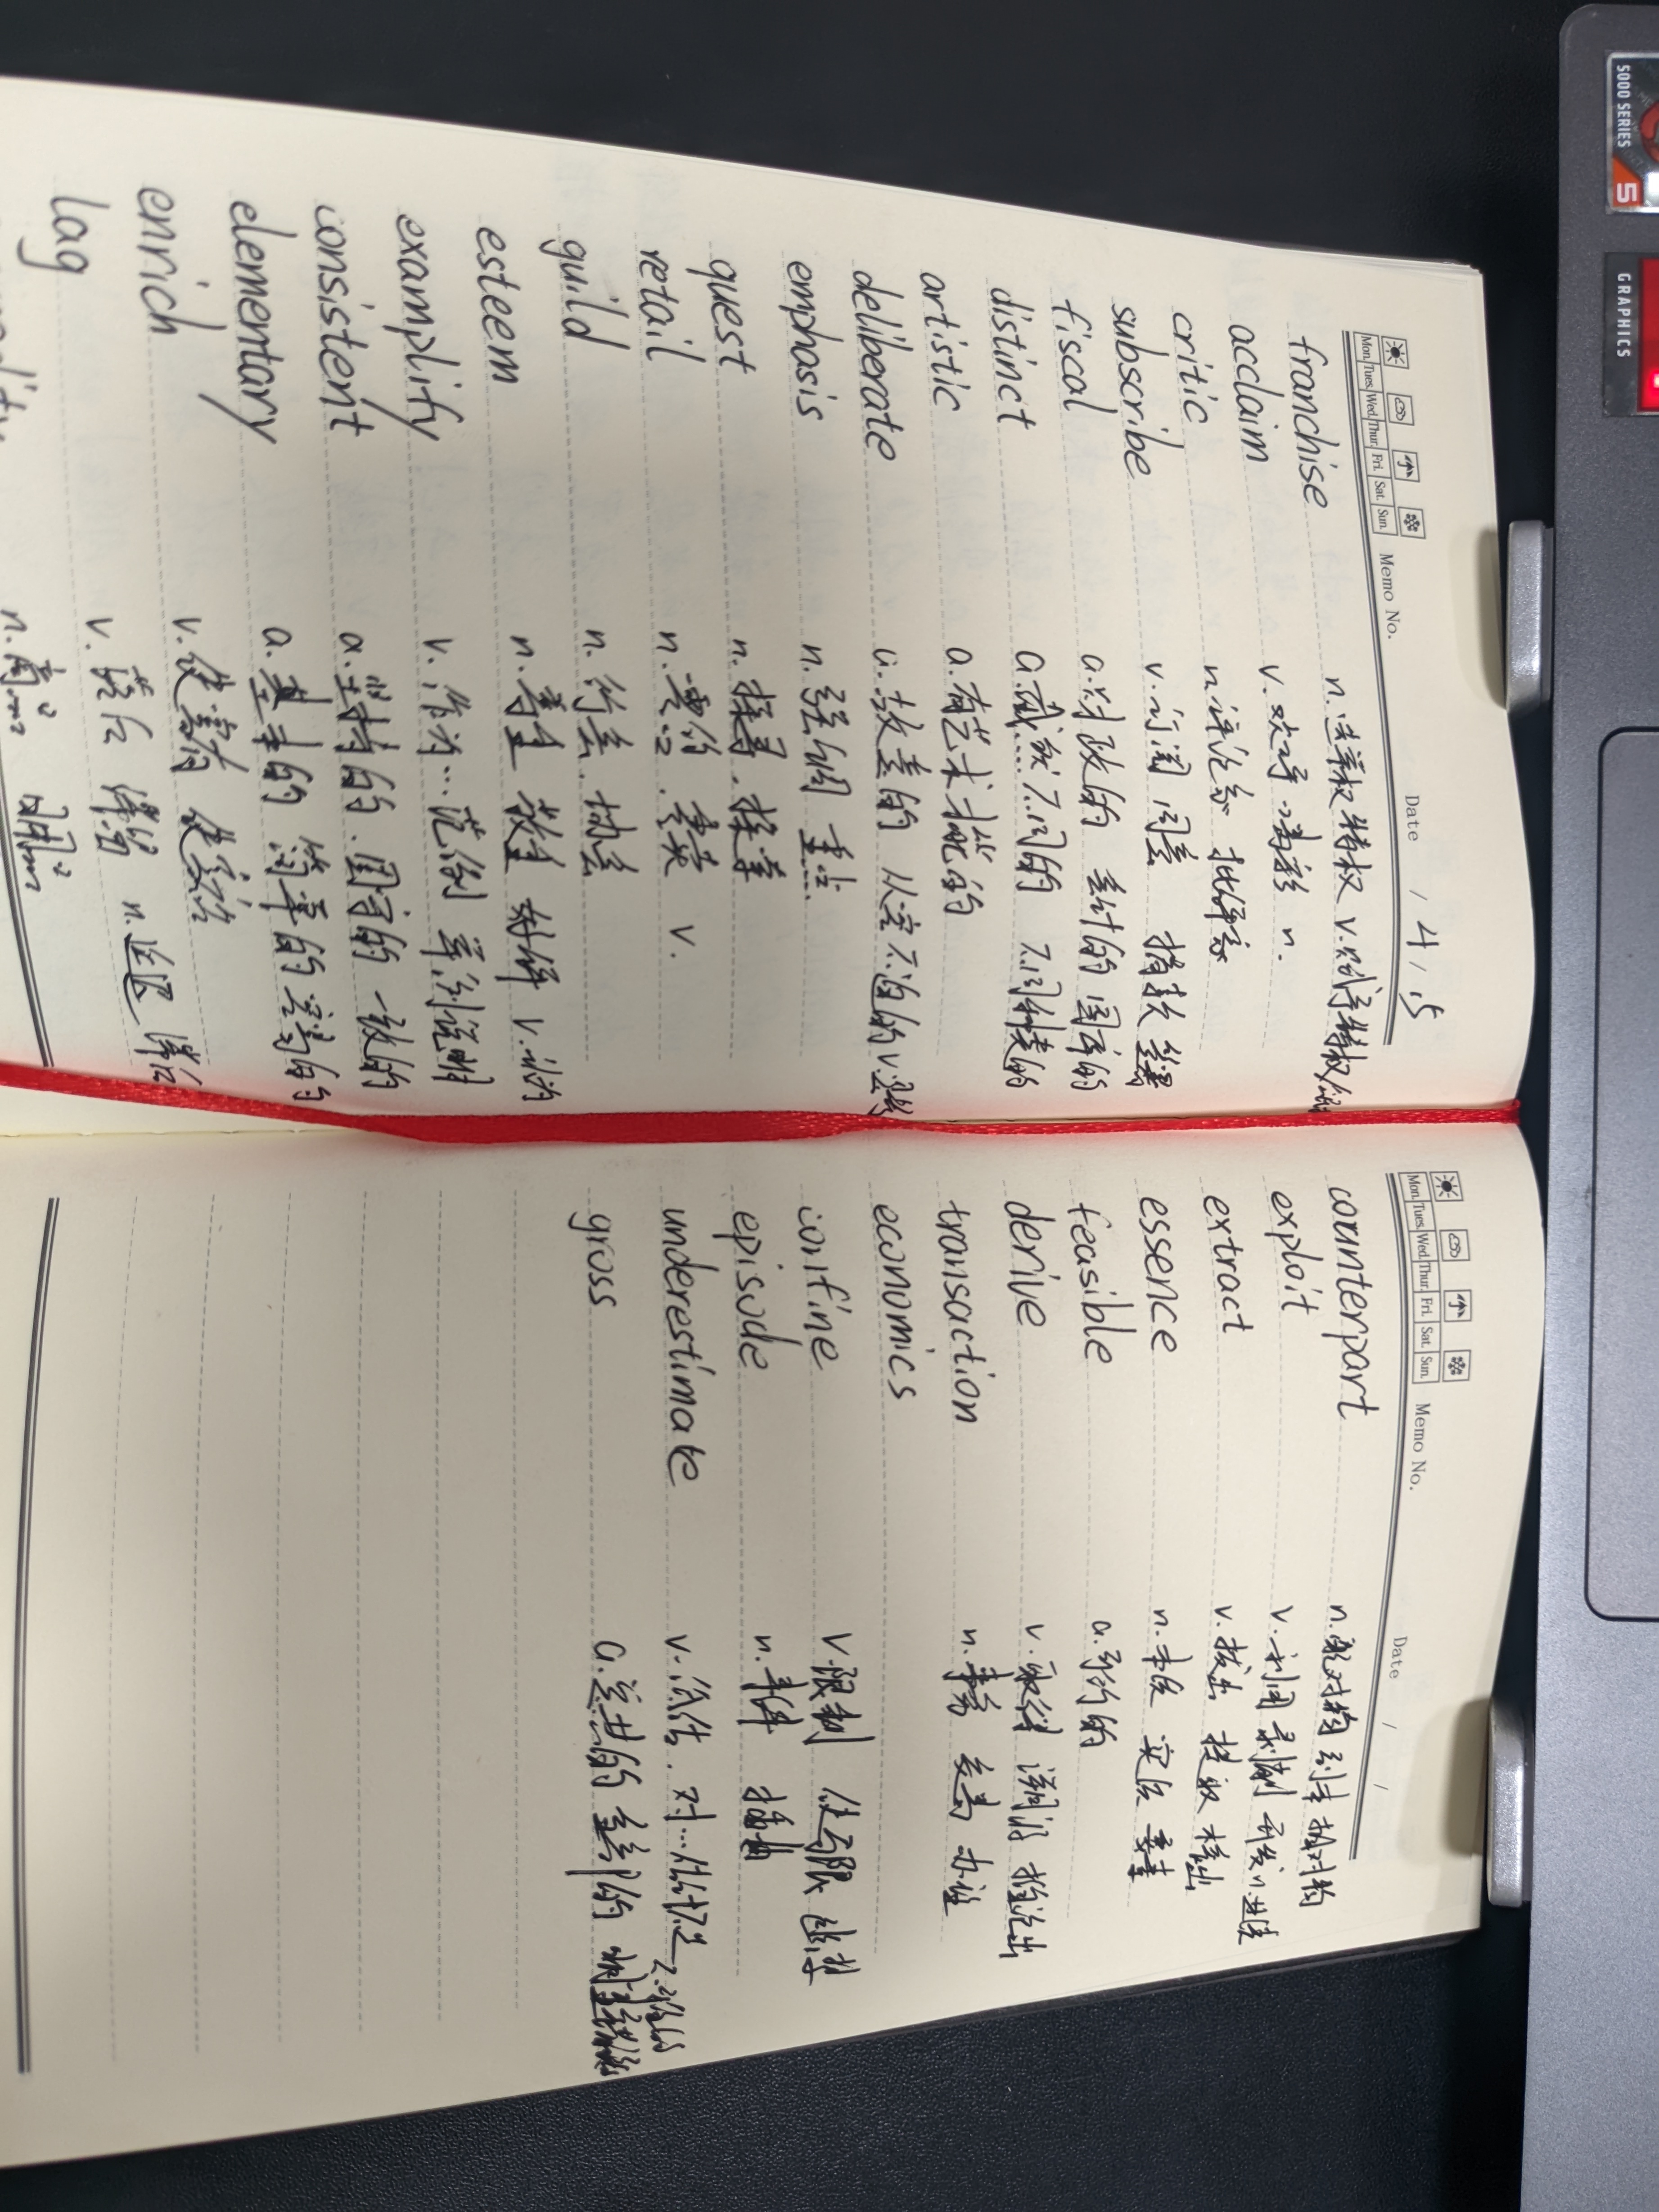 Mon. Tues. Wed. Thur. Fri. Sat. Sun. Memo No. Date / 4 / 15
franchise n. 选举权 特权 v. 赋予特权
acclaim v. 欢呼.喝彩 n.
critic n. 评论家 批评家
subscribe v. 订阅 同意 捐款 签署
fiscal a. 财政的 会计的 国库的
distinct a. 截然不同的 不同种类的
artistic a. 有艺术才能的
deliberate a. 故意的 从容不迫的 v.
emphasis n. 强调 重点
quest n. 探寻.探索
retail n. 零售. v.
guild n. 行会.协会
esteem n. 尊重 敬重 v. 认为
examplify v. 作为…范例 举例说明
consistent a. 坚持的.固守的 一致的
elementary a. 基本的 简单的 初等的
enrich v. 使富有 使富裕
lag v. 落后 滞留 n. 迟延 滞后
Mon. Tues. Wed. Thur. Fri. Sat. Sun. Memo No. Date / /
counterpart n. 副本
exploit v. 利用 剥削 开发 n.
extract v. 拔出 提取 榨出
essence n. 本质 实质
feasible a. 可行的
derive v. 取得 溯源 推论出
transaction n. 事务 交易 办理
economics
confine v. 限制 使局限
episode n. 事件 插曲
underestimate v. 低估.对…估计不足
gross a. 总共的
5000 SERIES
5
GRAPHICS